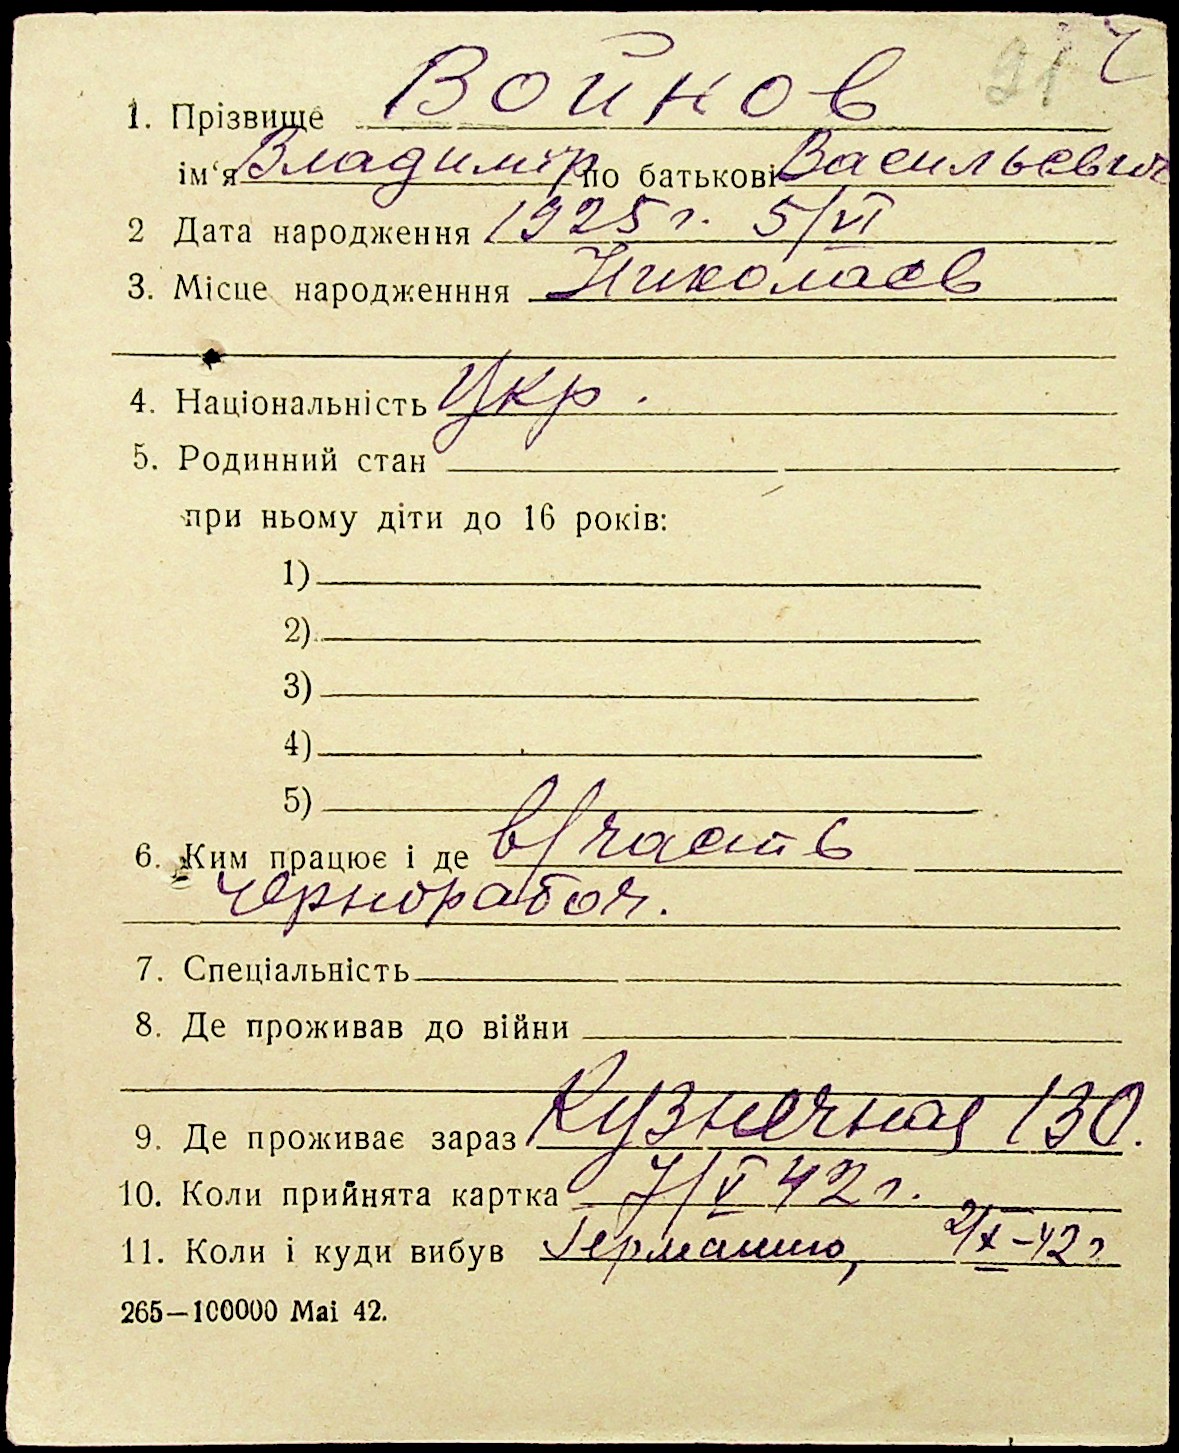 21 ч
1. Прізвище Войнов
ім‘я Владимир по батькові Васильевич
2 Дата народження 1925 г. 5/VI
3. Місце народженння Николаев
4. Національність Укр.
5. Родинний стан
при ньому діти до 16 років:
1)
2)
3)
4)
5)
6. Ким працює і де в/часть
чернорабоч.
7. Спеціальність
8. Де проживав до війни
9. Де проживає зараз Кузнечная 130.
10. Коли прийнята картка 7/V 42 г.
11. Коли і куди вибув Германию, 2/X-42 г
265—100000 Mai 42.